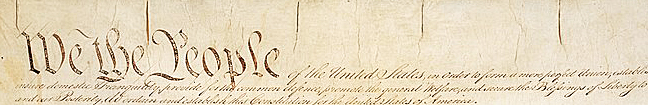 We the People of the United States, in Order to form a more perfect Union, establish
insure domestic Tranquility, provide for the common defence, promote the general Welfare, and secure the Blessings of Liberty to
and our Posterity, do ordain and establish this Constitution for the United States of America.